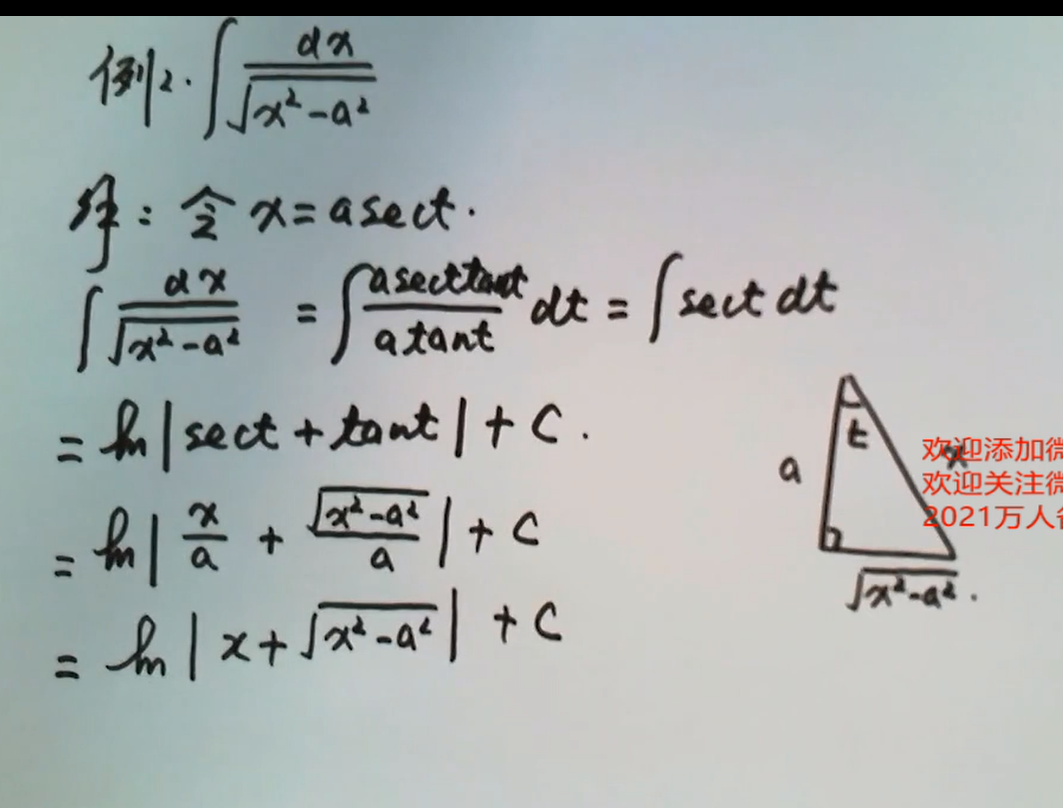 例2. ∫ dx/√(x²-a²)
解: 令 x = a sect.
∫ dx/√(x²-a²) = ∫ (a sect tant)/(a tant) dt = ∫ sect dt
= ln|sect + tant| + C.
= ln|x/a + √(x²-a²)/a| + C
= ln|x + √(x²-a²)| + C
t
a
x
√(x²-a²).
欢迎添加微
欢迎关注微
2021万人